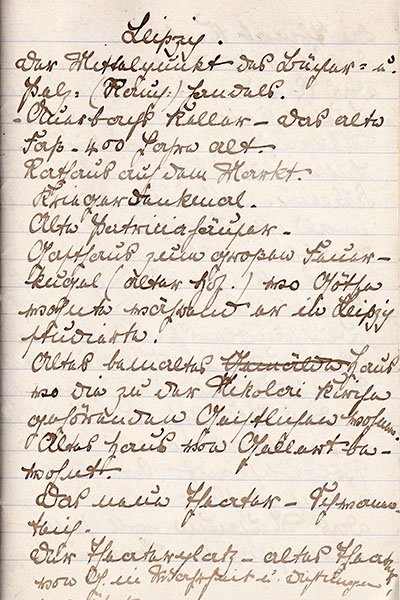 Leipzig.
Der Mittelpunkt des Bücher- u.
Pelz- (Rauch) handels.
Auerbachs Keller – das alte
Faß – 400 Jahre alt.
Rathaus auf dem Markt.
Kriegerdenkmal.
Alte Patrizierhäuser –
Gasthaus zum großen Feuer-
kugel (alter Hof.) wo Göthe
wohnte während er in Leipzig
studierte.
Altes bemaltes Gemälde Haus
wo die zu der Nikolai Kirche
gehörenden Geistlichen wohn.
Altes Haus von Gellert be-
wohnt.
Das neue Theater – Schwanen-
teich.
Der Theaterplatz – altes Theater
von G. in Wahrheit u. Dichtungen